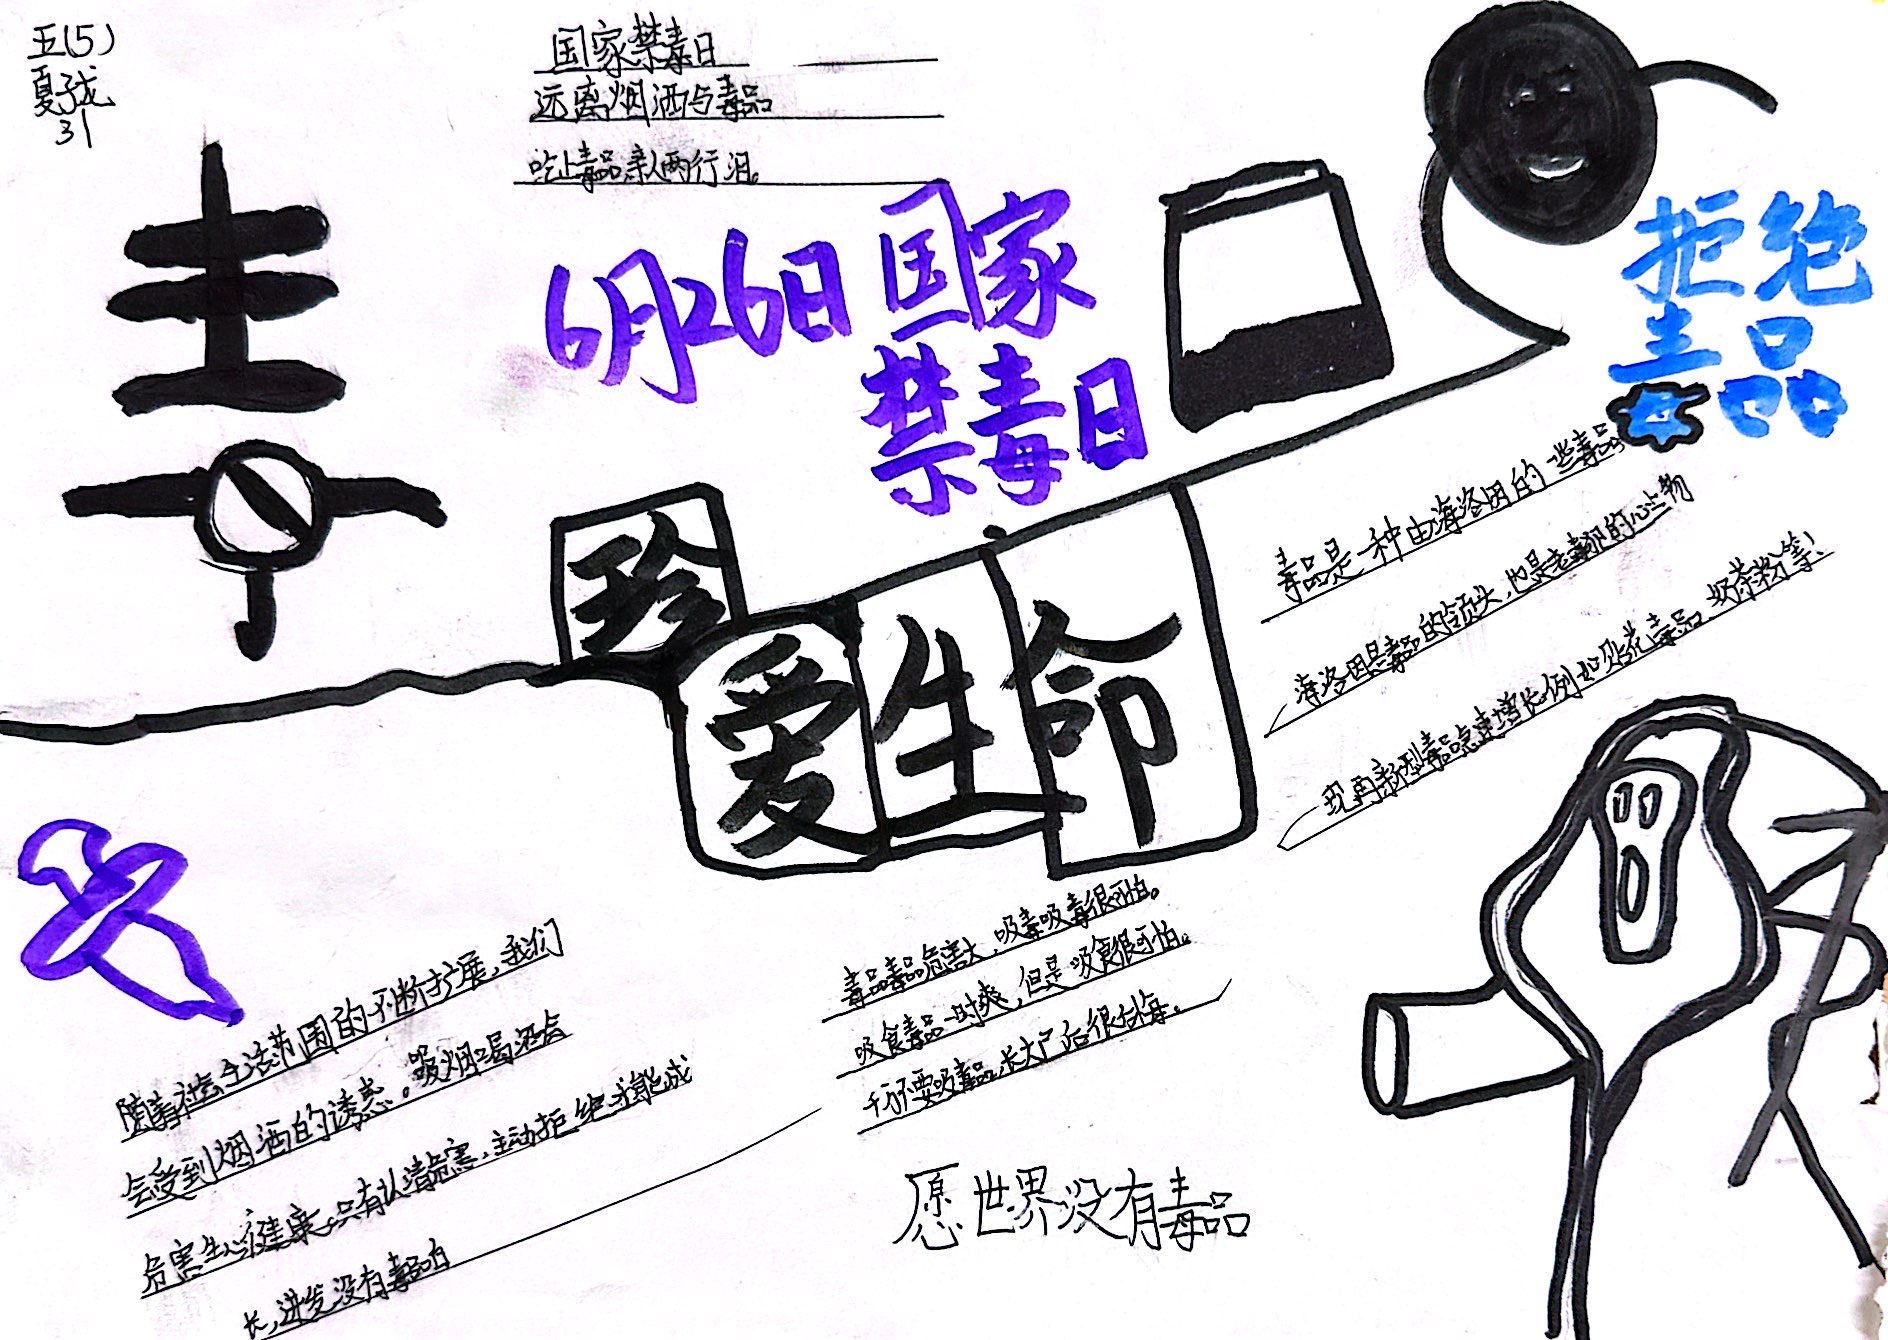 五(5)
夏子龙
31
国家禁毒日
远离烟洒与毒品
吃上毒品,亲人两行泪。
6月26日国家
禁毒日
拒绝
毒品
珍爱生命
毒品是一种由海洛因的一些毒品
海洛因是毒品的领头,也是老毒犯的心上物
现再新型毒品急速增长例如贴花毒品、奶茶粉等!
随着社会生活范围的不断扩展,我们
会受到烟洒的诱惑。吸烟喝酒会
危害生心健康,只有认清危害,主动拒绝才能成
长,迸发没有毒品白
毒品毒品危害大,吸毒吸毒很可怕。
吸食毒品一时爽,但是吸食很可怕。
千万不要吸毒品,长大已后很后悔。
愿世界没有毒品